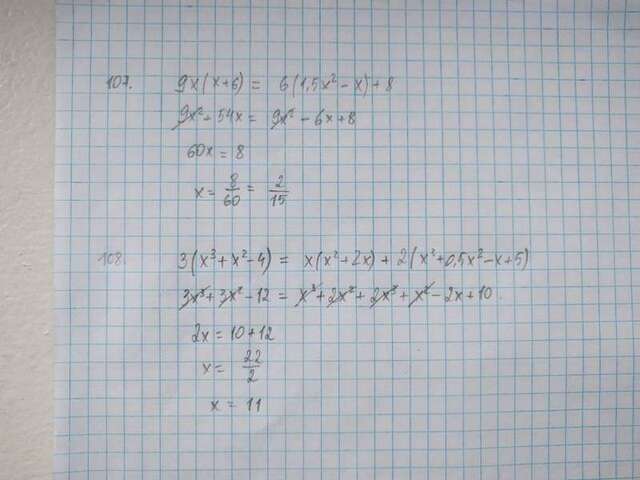 107. 9x(x+6) = 6(1,5x² - x) + 8
9x² + 54x = 9x² - 6x + 8
60x = 8
x = 8/60 = 2/15
108. 3(x³ + x² - 4) = x(x² + 2x) + 2(x³ + 0,5x² - x + 5)
3x³ + 3x² - 12 = x³ + 2x² + 2x³ + x² - 2x + 10
2x = 10 + 12
x = 22/2
x = 11